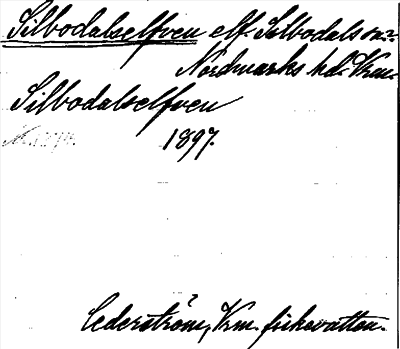 Silbodalselfven elf. Silbodals sn.
Nordmarks hd. Vrm.
Silbodalselfven
1897.
Cederström, Vrm. fiskevatten.